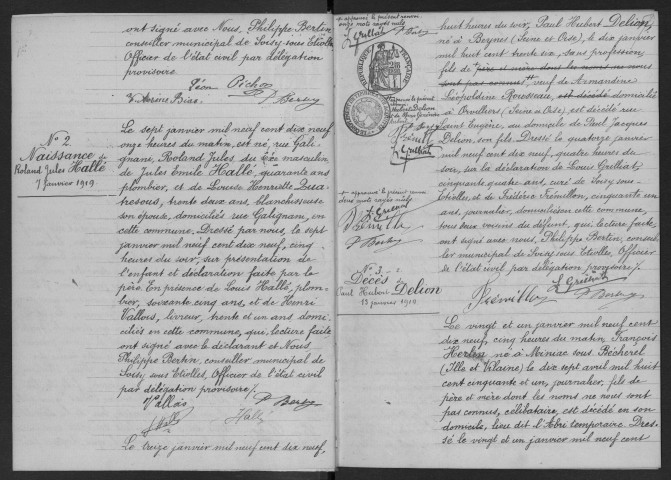 ont signé avec Nous, Philippe Bertin
conseiller municipal de Soisy sous Etiolles
Officier de l'état civil par délégation
provisoire
Léon Pichon
P. Bertin
N° 2
Naissance de
Roland Jules Hallé
7 janvier 1919
Le sept janvier mil neuf cent dix neuf
onze heures du matin, est né, rue Gali-
gnani, Roland Jules, du sexe masculin
de Jules Emile Hallé, quarante ans
plombier, et de Louise Henriette Qua-
tresous, trente deux ans, blanchisseuse
son épouse, domiciliés rue Galignani, en
cette commune. Dressé par nous, le sept
janvier mil neuf cent dix neuf, cinq
heures du soir, sur présentation de
l'enfant et déclaration faite par le
père En présence de Louis Hallé, plom-
bier, soixante cinq ans, et de Henri
Vallois, livreur, trente et un ans domi-
ciliés en cette commune, qui, lecture faite
ont signé avec le déclarant et Nous
Philippe Bertin, conseiller municipal de
Soisy sous Etiolles, Officier de l'état civil
par délégation provisoire /.
P. Bertin
Hallé
Hallé
Le treize janvier mil neuf cent dix neuf,
+ approuvé le présent renvoi
onze mots rayés nuls
RÉPUBLIQUE FRANÇAISE
N° 3
Décès de
Paul Hubert Delion
13 janvier 1919
huit heures du soir, Paul Hubert Delion,
né à (Seine et Oise), le dix janvier
mil huit cent trente six, sans profession,
fils de père et mère dont les noms ne nous
sont pas connus veuf de Armandine
Léopoldine Rousseau, est décédé domicilié
à Orvilliers, (Seine et Oise), est décédé rue
Saint Eugène, au domicile de Paul Jacques
Delion, son fils. Dressé le quatorze janvier
mil neuf cent dix neuf, quatre heures du
soir, sur la déclaration de Louis Grelliat,
cinquante quatre ans, curé de Soisy sous
Etiolles et de Frédéric Frémillon, cinquante et un
ans, journalier, domiciliés en cette commune,
tous voisins du défunt, qui, lecture faite,
ont signé avec nous, Philippe Bertin, conseil.
ler municipal de Soisy sous Etiolles, Officier de
l'état civil par délégation provisoire /.
P. Bertin
Le vingt et un janvier mil neuf cent
dix neuf, cinq heures du matin, François
né à Miniac sous Bécherel
(Ille et Vilaine) le dix sept avril mil huit
cent cinquante et un, journalier, fils de
père et mère dont les noms ne nous sont
pas connus, célibataire, est décédé en son
domicile, lieu dit l'Abri temporaire. Dres-
sé le vingt et un janvier mil neuf cent